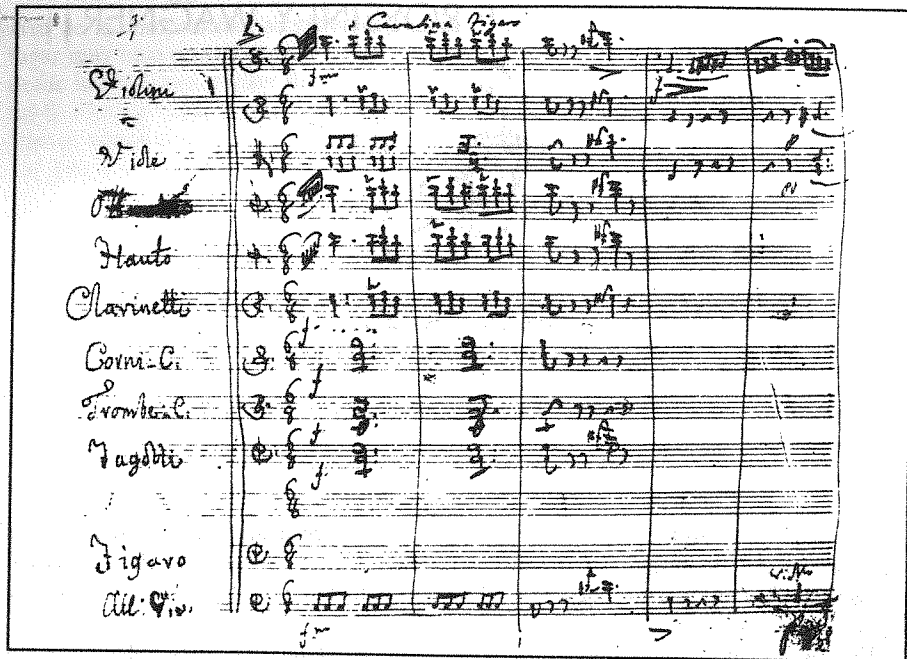 Cavatina Figaro
Violini
Viole
Flauto
Clarinetti
Corni-C.
Trombe-C.
Fagotti
Figaro
All: Viv.